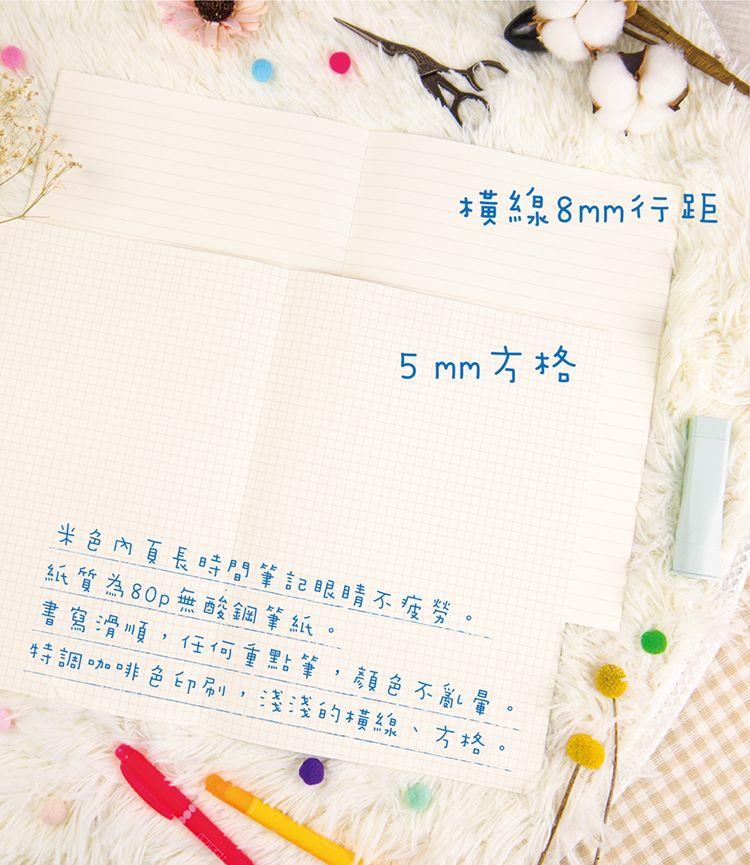 橫線8mm行距
5 mm方格
米色內頁長時間筆記眼睛不疲勞。
紙質為80p無酸鋼筆紙。
書寫滑順，任何重點筆，顏色不亂暈。
特調咖啡色印刷，淺淺的橫線、方格。